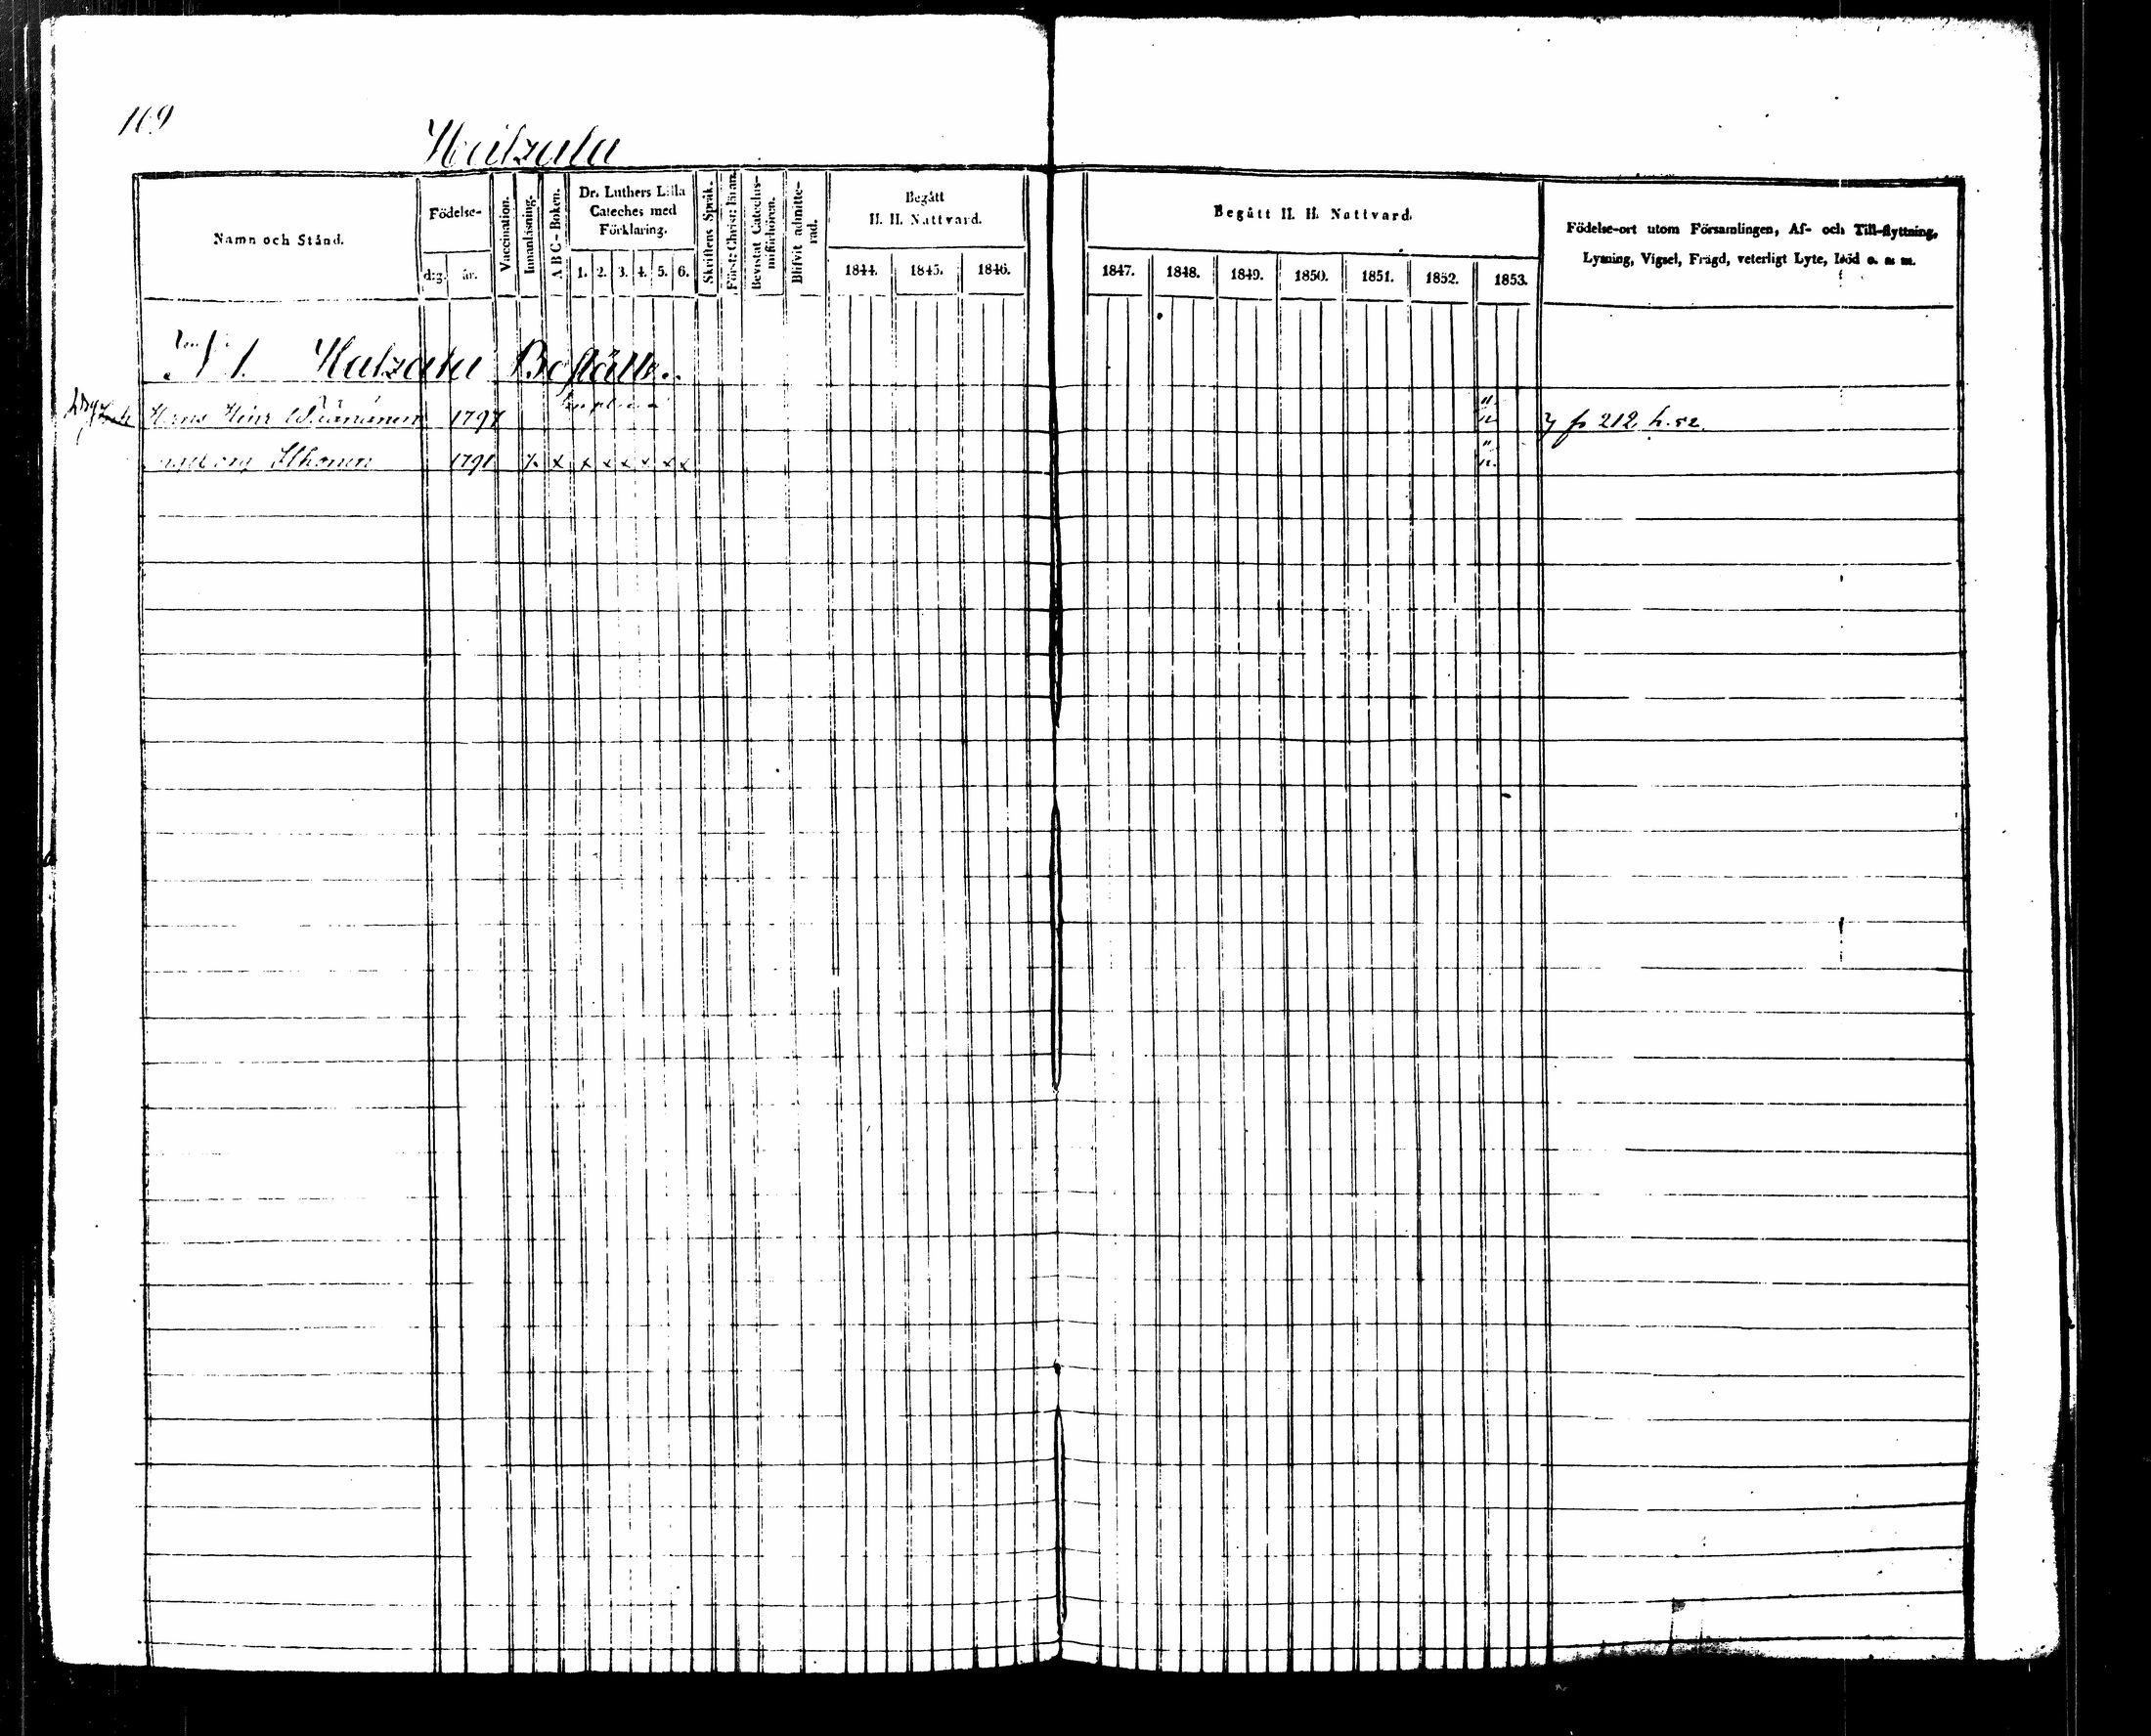 109
Hatzala
Namn och Stånd.
Födelse-
d:g.
år.
Vaccination.
Innanläsning.
A B C-Boken.
Dr. Luthers Lilla
Cateches med
Förklaring.
1. 2. 3. 4. 5. 6.
Skriftens Språk.
Först: Christ: läran.
Bevistat Catechis-
miförhören.
Blifvit admitte-
rad.
Begått
H. H. Nattvard.
1844. 1845. 1846.
Begått H. H. Nattvard.
1847. 1848. 1849. 1850. 1851. 1852. 1853.
Födelse-ort utom Församlingen, Af- och Till-flyttning,
Lysning, Vigsel, Frägd, veterligt Lyte, Död o. s. m.
N 1. Hatzala Boställe.
Hans Henr Wäänänen 1797 fr 212 h. 52.
Ingeborg Ikonen 1791 x x x x x x x x